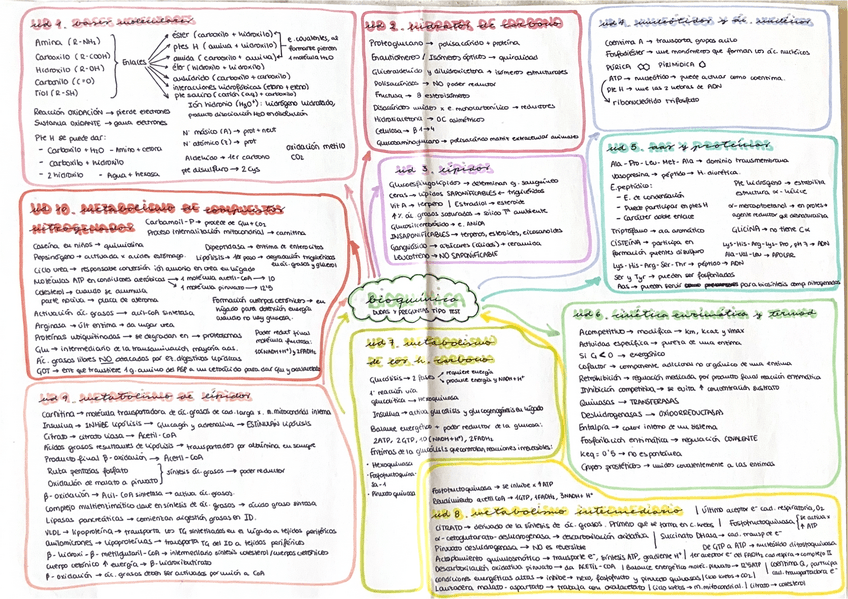 ud 1. bases moleculares
Amina (R-NH₂)
Carboxilo (R-COOH)
Hidroxilo (R-OH)
Carbonilo (C=O)
Tiol (R-SH)
Enlaces
éster (carboxilo + hidroxilo)
ptes H (amina + hidroxilo)
amida (carboxilo + amina)
éter (hidroxilo + hidroxilo)
anhídrido (carboxilo + carboxilo)
interacciones hidrofóbicas (etano + eteno)
pte salino (carbox (aq) + carboxilo)
e. covalentes, al formarse pierden 1 molécula H₂O
Ion hidronio (H₃O⁺): hidrógeno hidratado,
Reacción OXIDACIÓN → pierde electrones
Sustancia OXIDANTE → gana electrones
Pte H se puede dar:
- Carboxilo + H₂O - Amino + cetona
- Carboxilo + hidroxilo
- 2 hidroxilo - Agua + hexosa
Nº másico (A) → prot + neut
Nº atómico (Z) → prot
Aldehído → 1er carbono
pte disulfuro → 2 Cys
oxidación metilo
CO₂
ud 2. hidratos de carbono
Proteoglucano → polisacárido + proteína
Enantiómeros / Isómeros ópticos → quiralidad
Gliceraldehído y dihidroxiacetona → isómeros estructurales
Polisacáridos → NO poder reductor
Fructosa → 8 estereoisómeros
Disacáridos unidos x e. monocarbonílico → reductores
Hidroxiacetona → 0C asimétricos
Celulosa → β 1→4
Glucosaminoglucano → polisacáridos matriz extracelular animales
ud 3. lípidos
Glucoesfingolípidos → determinan g. sanguíneo
ceras → lípidos SAPONIFICABLES + triglicéridos
Vit A → terpeno | Estradiol → esteroide
↑ % ác. grasos saturados → sólido Tª ambiente
INSAPONIFICABLES → terpenos, esteroides, eicosanoides
Gangliósido → azúcares (ácidos) + ceramida
Leucotrieno → NO SAPONIFICABLE
ud 4. nucleótidos y ác. nucleicos
Coenzima A → transporta grupos acilo
Fosfodiéster → une monómeros que forman los ác. nucleicos
PÚRICA PIRIMIDICA
ATP → nucleótido → puede actuar como coenzima.
pte H → une las 2 hebras de ADN
ribonucleótido trifosfato
ud 5. aas y proteínas
Ala-Pro-Leu-Met-Ala → dominio transmembrana
Vasopresina → péptido → H. diurética.
E. peptídico:
- E. de condensación
- Puede participar en ptes H
- Carácter doble enlace
Pte hidrógeno → estabiliza estructura α-hélice
α-mercaptoetanol → en protes → agente reductor que desnaturaliza
Triptófano → aa aromático
GLICINA → no tiene C*
CISTEÍNA → participa en formación puentes disulfuro
Lys-His-Arg-Lys-Pro, pH 7 → ADN
Ala-Val-Leu → APOLAR
Lys-His-Arg-Ser-Thr → péptido → ADN
Ser y Tyr → pueden ser fosforiladas
Aas → pueden servir para biosíntesis comp nitrogenados
bioquímica
DUDAS Y PREGUNTAS TIPO TEST
ud 6. cinética enzimática y termod
Acompetitivo → modifica → km, kcat y Vmax
Actividad específica → pureza de una enzima
Si G < 0 → exergónico
Cofactor → componente adicional no orgánico de una enzima
Retroinhibición → regulación mediada por producto final reacción enzimática
Inhibición competitiva → se evita ↑ concentración sustrato
Quinasas → TRANSFERASAS
Deshidrogenasas → OXIDORREDUCTASAS
Entalpía → calor interno de un sistema
Fosforilación enzimática → regulación COVALENTE
Keq = 0'5 → no espontánea
Grupos prostéticos → unidos covalentemente a las enzimas
ud 7. metabolismo de los h. carbono
Glucólisis → 2 fases
requiere energía
produce energía y NADH + H⁺
1ª reacción vía glucolítica → Hexoquinasa
Insulina → activa glucólisis y glucogenogénesis en hígado
Balance energético + poder reductor de la glucosa:
2ATP, 2GTP, 10(NADH+H⁺), 2FADH₂
Enzimas de la glucólisis que controlan reacciones irreversibles:
- Hexoquinasa
- Fosfofructoquinasa-1
- Piruvato quinasa
Fosfofructoquinasa → se inhibe x ↑ ATP
Rendimiento acetil CoA → 1GTP, 1FADH₂, 3NADH+H⁺
ud 8. metabolismo intermediario
Último aceptor e⁻ cad. respiratoria, O₂
CITRATO → derivado de la síntesis de ác. grasos. Primero que se forma en c. Krebs
Fosfofructoquinasa
Se activa x ↑ ATP
α-cetoglutarato deshidrogenasa → descarboxilación oxidativa
Succinato DHasa → cad. transp. e⁻
Piruvato deshidrogenasa → NO es reversible
De GTP a ATP → nucleósido difosfoquinasa
Acoplamiento quimiosmótico → transporte e⁻, síntesis ATP, gradiente H⁺
1er aceptor e⁻ de FADH₂ cad. resp → complejo II
Descarboxilación oxidativa piruvato → da ACETIL-CoA
Balance energético
condiciones energéticas altas → inhibe → hexo, fosfofructo y piruvato quinasa
Lanzadera malato-aspartato → trabaja con oxalacetato
ciclo Krebs → m. mitocondrial
citrato → colesterol
ud 9. metabolismo de lípidos
Carnitina → molécula transportadora de ác. grasos de cad. larga x m. mitocondrial interna
Insulina → INHIBE lipólisis → Glucagón y adrenalina → ESTIMULAN lipólisis
Citrato → citrato liasa → Acetil-CoA
Ácidos grasos resultantes de lipólisis → transportados por albúmina en sangre
Producto final β-oxidación → Acetil-CoA
Ruta pentosas fosfato
Oxidación de malato a piruvato
síntesis ác. grasos → poder reductor
β-oxidación → Acil-CoA sintetasa → activa ác. grasos.
Complejo multienzimático clave en síntesis de ác. grasos → ácido graso sintasa
Lipasas pancreáticas → comienzan digestión grasas en ID.
VLDL → lipoproteína → transporta los TG sintetizados en el hígado a tejidos periféricos
Quilomicrones → lipoproteínas → transporta TG del ID a tejidos periféricos
β-hidroxi-β-metilglutaril-CoA → intermediario síntesis colesterol/cuerpos cetónicos
Cuerpo cetónico ↑ energía → β-hidroxibutirato
β-oxidación → ác. grasos deben ser activados por unión a CoA
ud 10. metabolismo de compuestos nitrogenados
Carbamoil-P → procede de Glu + CO₂
Proceso internalización mitocondrial → carnitina
Caseína en niños → quimosina
Dipeptidasa → enzima de enterocitos
Pepsinógeno → activado x ácidos estómago.
Lipólisis → 1er paso → degradación triglicéridos en ác. grasos y glicerol
Ciclo urea → responsable conversión ión amonio en urea en hígado
Moléculas ATP en condiciones aeróbicas
1 molécula acetil-CoA → 10
1 molécula piruvato → 12'5
Colesterol → cuando se acumula parte íntima → placa de ateroma.
Activación ác. grasos → acil-CoA sintetasa
Arginasa → últ enzima → da lugar urea
Formación cuerpos cetónicos → en hígado para obtención energía cuando no hay glucosa.
Proteínas ubiquitinadas → se degradan en → proteasomas
Glu → intermediario de la transaminación mayoría aas.
Ác. grasos libres NO atacados por ez. digestivas lipasas
Poder reduct final molécula glucosa: 10(NADH+H⁺) y 2FADH₂